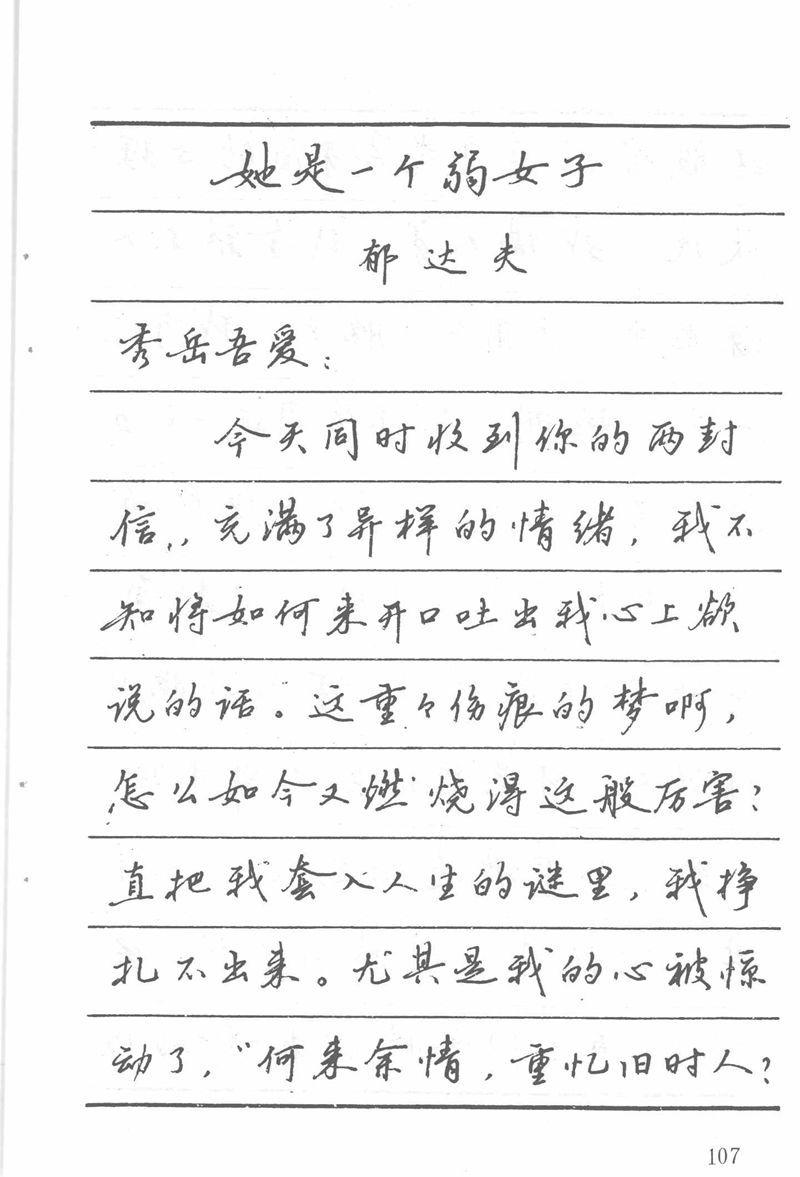 她是一个弱女子
郁达夫
秀岳吾爱：
今天同时收到你的两封
信，充满了异样的情绪，我不
知将如何来开口吐出我心上欲
说的话。这重々伤痕的梦啊，
怎么如今又燃烧得这般厉害？
直把我套入人生的谜里，我挣
扎不出来。尤其是我的心被惊
动了，“何来余情，重忆旧时人？
107